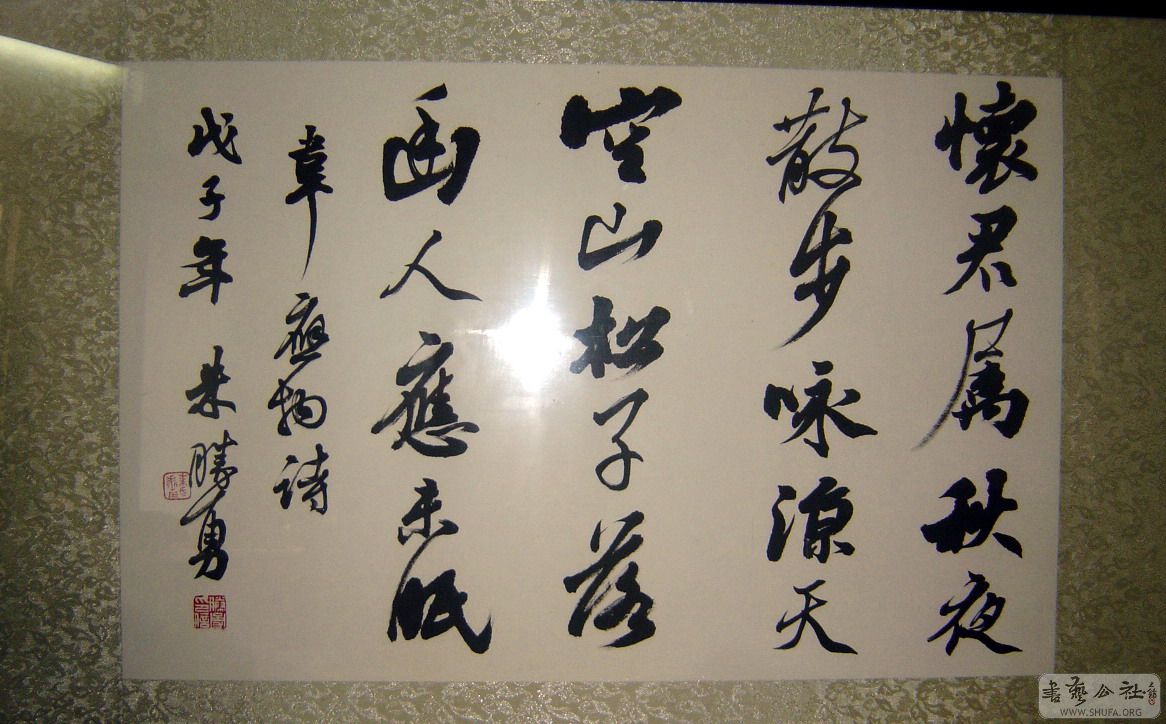 懷君属秋夜
散步咏涼天
空山松子落
幽人應未眠
韋應物詩
戊子年 朱勝勇
書藝公社
WWW.SHUFA.ORG